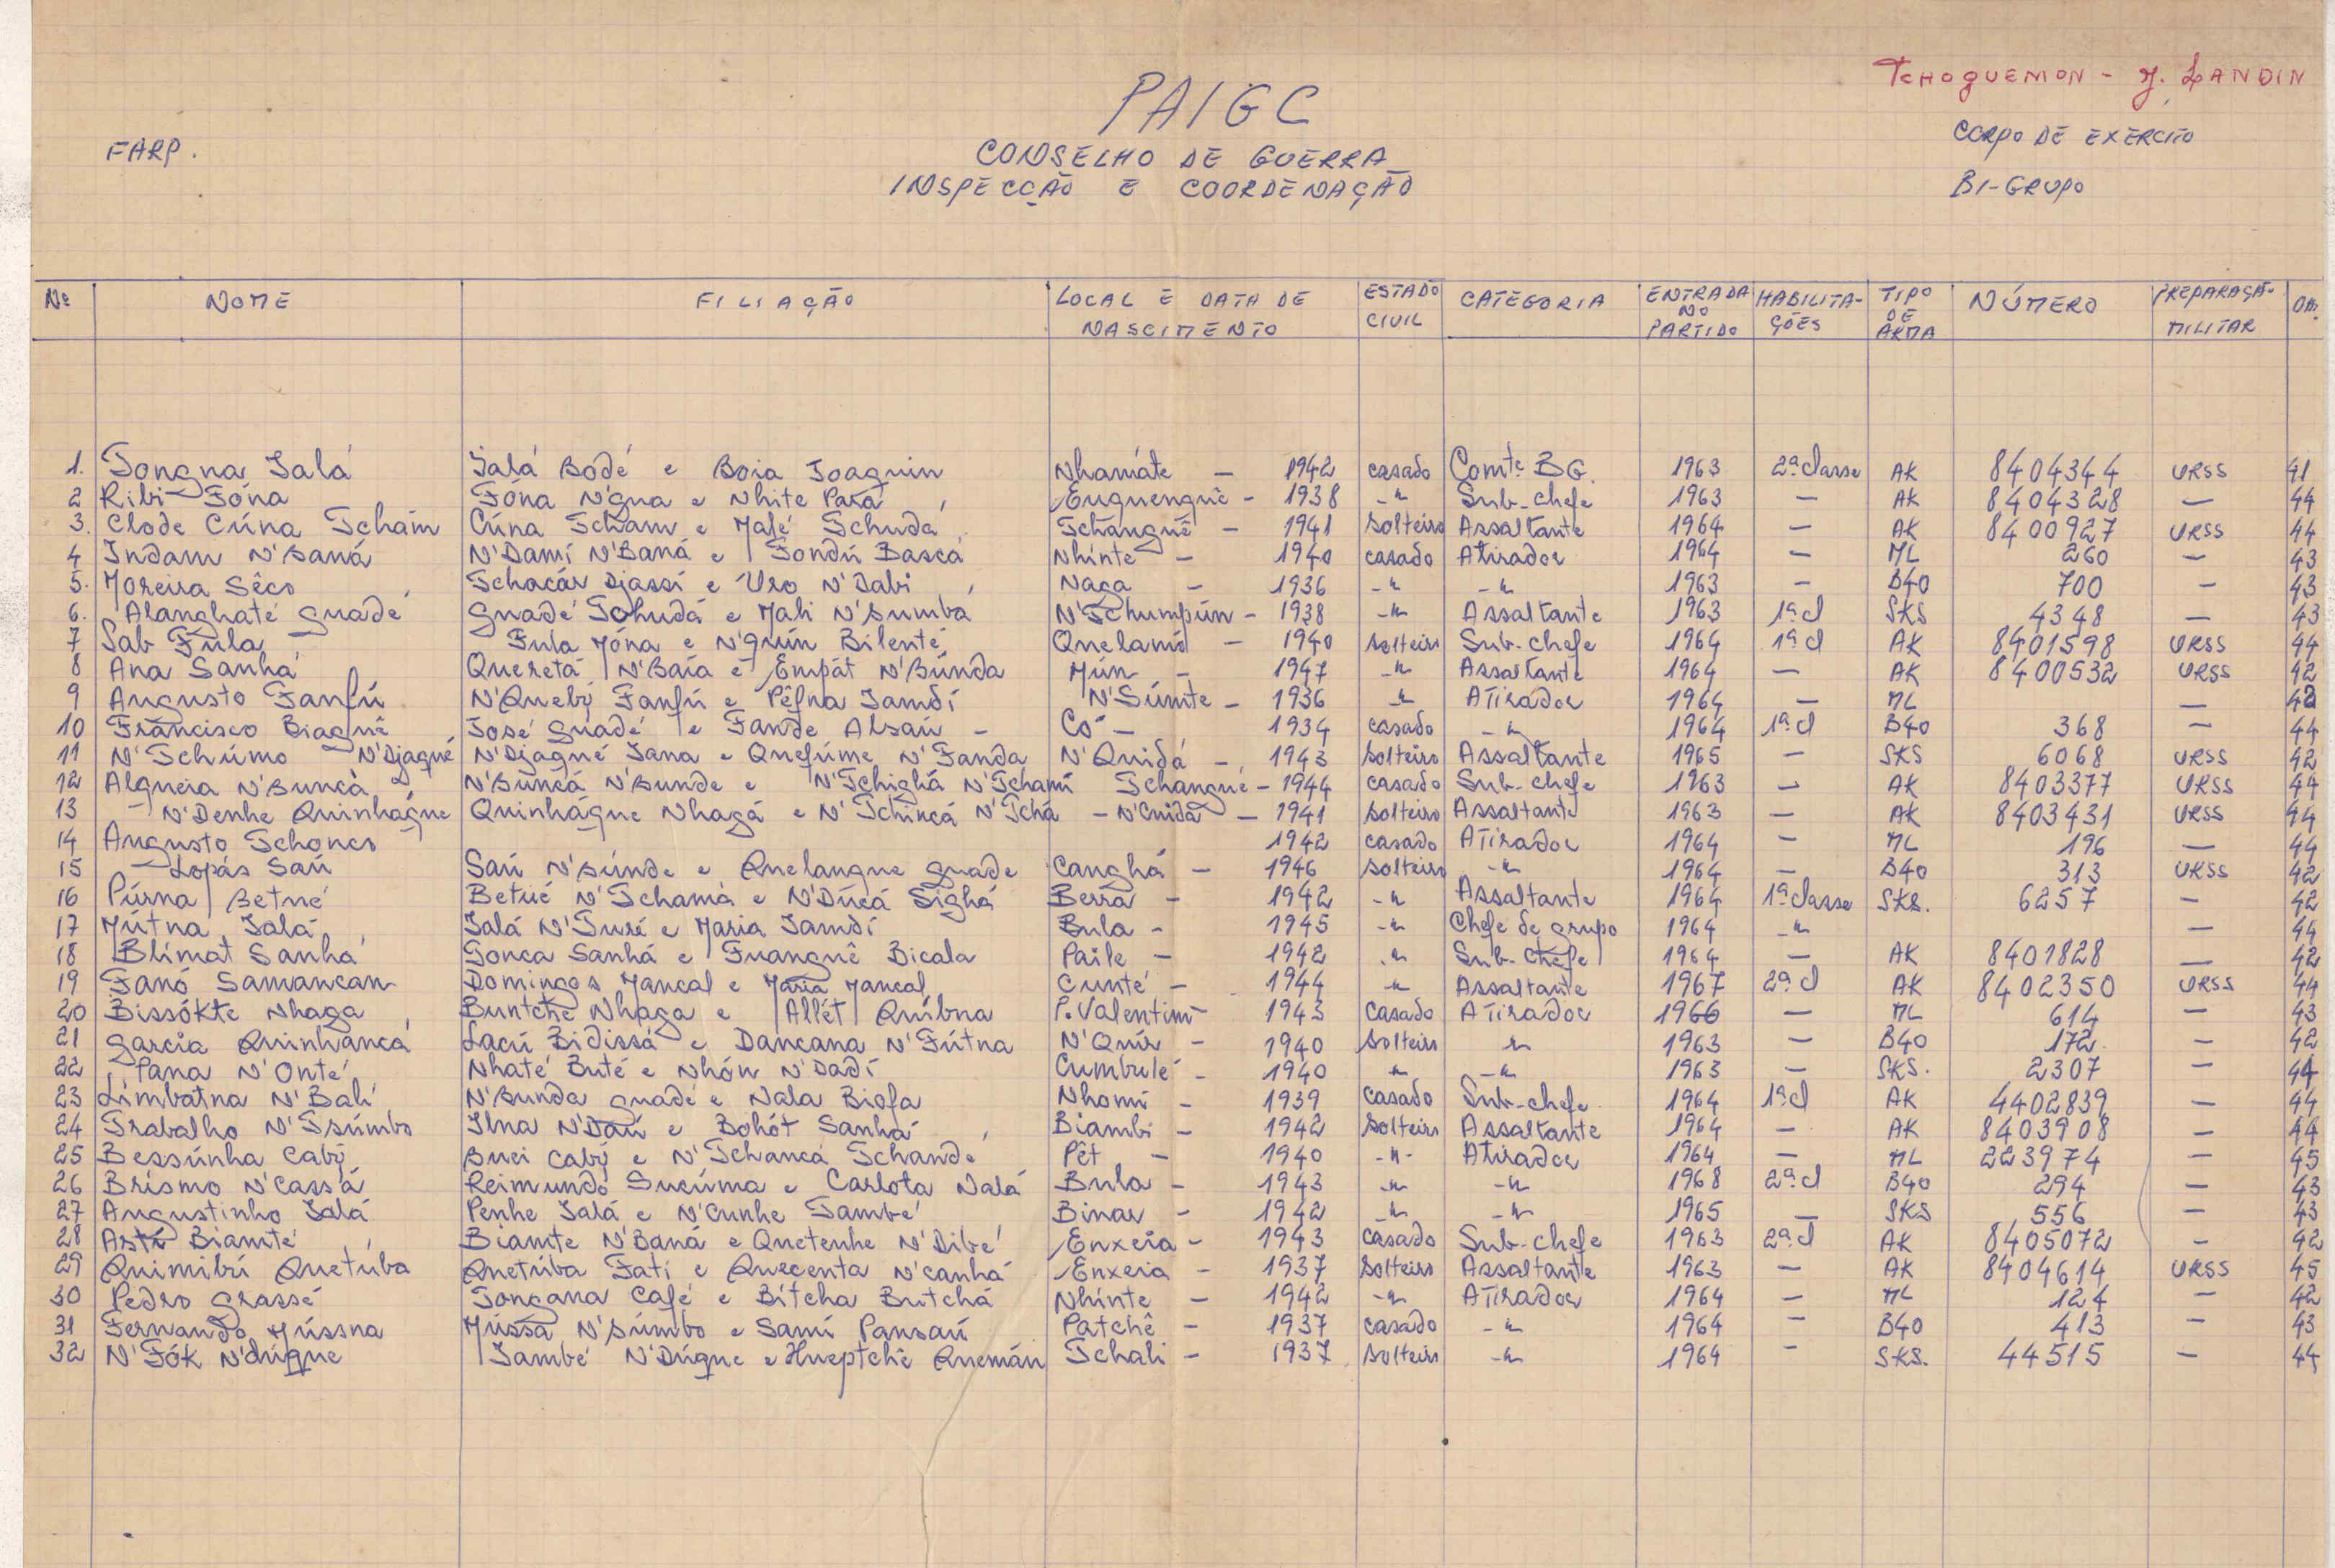 TCHOGUEMON - J. LANDIN
PAIGC
FARP.
CORPO DE EXERCITO
CONSELHO DE GUERRA
INSPECÇÃO E COORDENAÇÃO
BI-GRUPO
Nº NOME FILIAÇÃO LOCAL E DATA DE NASCIMENTO ESTADO CIVIL CATEGORIA ENTRADA NO PARTIDO HABILITA-ÇÕES TIPO DE ARMA NÚMERO PREPARAÇÃO MILITAR
1. Tongna Ialá Ialá Bodé e Boia Joaquin Nhamáte - 1942 casado Comte BG. 1963 2ª classe AK 8404344 URSS 41
2 Ribi Fóna Fóna N'gua e Nhite Pará Enguenguê - 1938 -"- Sub-chefe 1963 - AK 8404328 - 44
3. Clode Cúna Tchám Cúna Tcham e Malé Tchuda Tchanguê - 1941 solteiro Assaltante 1964 - AK 8400927 URSS 44
4 Indam N'Baná N'Damí N'Baná e Fondú Bascá Nhinte - 1940 casado Atirador 1964 - ML 260 - 43
5. Moreira Sêco Tchacár Djassí e Uro N'Dabi Naga - 1936 -"- -"- 1963 - B40 700 - 43
6. Alanghaté Guadé Guadé Tchudá e Mali N'Bumbá N'Tchumpún - 1938 -"- Assaltante 1963 1ª cl SKS 4348 - 43
7 Sab Fula Fula Móna e N'quín Bilenté Quelamú - 1940 solteiro Sub-chefe 1964 1ª cl AK 8401598 URSS 44
8 Ana Sanhá Queretá N'Baía e Empát N'Búnda Mún - 1947 -"- Assaltante 1964 - AK 8400532 URSS 42
9 Augusto Fanfú N'Queby Fanfú e Pêfna Iamdí N'Súmte - 1936 -"- Atirador 1964 - ML - 42
10 Francisco Biaguê José Guadé e Fande Alsaú - Có - 1934 casado -"- 1964 1ª cl B40 368 - 44
11 N'Tchúmo N'Djagué N'Djagué Iana e Quefúme N'Fanda N'Quidá - 1943 solteiro Assaltante 1965 - SKS 6068 URSS 42
12 Algueia N'Buncà N'Buncá N'Bunde e N'Tchighá N'Tchamí Tchangué - 1944 casado Sub-chefe 1963 - AK 8403377 URSS 44
13 N'Denhe Quinhágue Quinhágue Nhagá e N'Tchincá N'Tchá - N'Cuidá - 1941 solteiro Assaltante 1963 - AK 8403431 URSS 44
14 Augusto Tchonco 1942 casado Atirador 1964 - ML 196 - 44
15 Lopás Saú Saú N'Búnde e Quelangue Guade Canghá - 1946 solteiro -"- 1964 - B40 313 URSS 42
16 Púrna Betué Betué N'Tchamá e N'Dúcá Sighá Berrá - 1942 -"- Assaltante 1964 1ª classe SKS. 6257 - 42
17 Mútna Ialá Ialá N'Turé e Maria Iamdí Bula - 1945 -"- Chefe de grupo 1964 -"- - 44
18 Blímat Sanhá Tonca Sanhá e Fuanguê Bicala Paile - 1942 -"- Sub-chefe 1964 - AK 8401828 - 42
19 Fanó Samancan Domingos Mancal e Maria Mancal Cunté - 1944 -"- Assaltante 1967 2ª cl AK 8402350 URSS 44
20 Bissókte Nhaga Buntchê Nhaga e Allét Quíbna P. Valentim - 1943 casado Atirador 1966 - ML 614 - 43
21 Garcia Quinhancá Lacú Bidissá e Dancana N'Fútna N'Quír - 1940 solteiro -"- 1963 - B40 172 - 42
22 Pana N'Onté Nhaté Buté e Nhón N'Dadí Cumbulé - 1940 -"- -"- 1963 - SKS. 2307 - 44
23 Limbátna N'Bali N'Bunda Guadé e Nala Biofa Nhomí - 1939 casado Sub-chefe 1964 1ª cl AK 4402839 - 44
24 Trabalho N'Tsúmbo Ilna N'Daú e Bohót Sanhá Biambi - 1942 solteiro Assaltante 1964 - AK 8403908 - 44
25 Bessúnha Caby Buei Caby e N'Tchancá Tchande Pêt - 1940 -"- Atirador 1964 - ML 223974 - 45
26 Brísmo N'Cassá Reimundo Sucúma e Carlota Nalá Bula - 1943 -"- -"- 1968 2ª cl B40 294 - 43
27 Augustinho Ialá Penhe Ialá e N'Cunhe També Binar - 1942 -"- -"- 1965 - SKS 556 - 43
28 Biamté Biamte N'Baná e Quetenhe N'Dibé Enxeia - 1943 casado Sub-chefe 1963 2ª cl AK 8405072 - 42
29 Quimibú Quetúba Quetúba Fatí e Quecenta N'canhá Enxeia - 1937 solteiro Assaltante 1963 - AK 8404614 URSS 45
30 Pedro Grassé Tongana Café e Bítcha Butchá Nhínte - 1942 -"- Atirador 1964 - ML 124 - 42
31 Fernando Mússna Mússa N'Súmbo e Samí Pansaú Patchê - 1937 casado -"- 1964 - B40 413 - 43
32 N'Fók N'dúgue Iambé N'Dúgue e Hueptchê Quemán Tchali - 1937 solteiro -"- 1964 - SKS. 44515 - 44